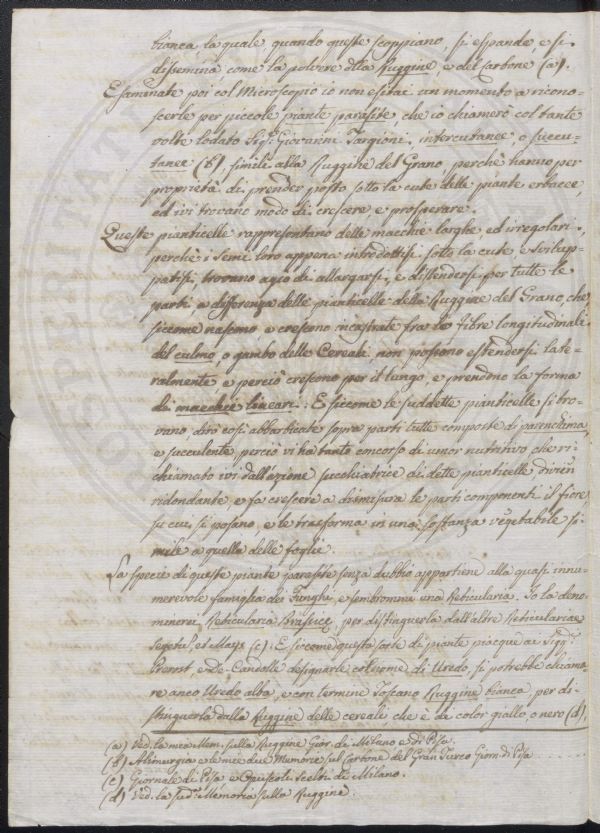 bianca, la quale, quando queste scoppiano, si espande, e si
dissemina come la polvere della Ruggine, e del Carbone (a).
Esaminate poi col Microscopio io non esitai un momento a ricono-
scerle per piccole piante parasite, che io chiamerò col tante
volte lodato Sig.r Giovanni Targioni, intercutanee, o succu-
tanee (b), simili alla Ruggine del Grano, perchè hanno per
proprietà di prender posto sotto la cute delle piante erbacee,
ed ivi trovano modo di crescere e prosperare.
Queste pianticelle rappresentano delle macchie larghe ed irregolari,
perchè i semi loro appena introdottisi sotto la cute, e svilup-
patisi, trovano agio di allargarsi, e distendersi per tutte le
parti, a differenza delle pianticelle della Ruggine del Grano, che
siccome nascono, e crescono incastrate fra le fibre longitudinali
del culmo, o gambo delle Cereali non possono estendersi late-
ralmente e perciò crescono per il lungo, e prendono la forma
di macchie lineari. E siccome le suddette pianticelle si tro-
vano, dirò così abbarbicate sopra parti tutte composte di parenchima
e succulente, perciò vi ha tanto concorso di umor nutritivo, che ri-
chiamato ivi dall'azione succhiatrice di dette pianticelle divien
ridondante, e fa crescere a dismisura le parti componenti il fiore
su cui si posano, e le trasforma in una sostanza vegetabile si-
mile a quella delle foglie.
La specie di queste piante parasite senza dubbio appartiene alla quasi innu-
merevole famiglia dei Funghi, e sembrommi una Reticularia. Io la deno-
minerei, Reticularia Brassicae, per distinguerla dall'altre Reticulariae
Segetum, et Mays (c). E siccome questa sorte di piante piacque ai Sigg.ri
e De-Candolle designarle col nome di Uredo, si potrebbe chiama-
re anco Uredo alba, e con termine Toscano Ruggine bianca, per di-
stinguerla dalla Ruggine delle cereali che è di color giallo, o nero (d).
(a) Ved. la mea Mem. sulla Ruggine Gior. di Milano e di Pisa.
(b) Alimurgia e le mie due Memorie sul Carbone del Gran Turco Giorn. di Pisa
(c) Giornale di Pisa e Opuscoli Scelti di Milano.
(d) Ved. la sud.a Memoria sulla Ruggine.